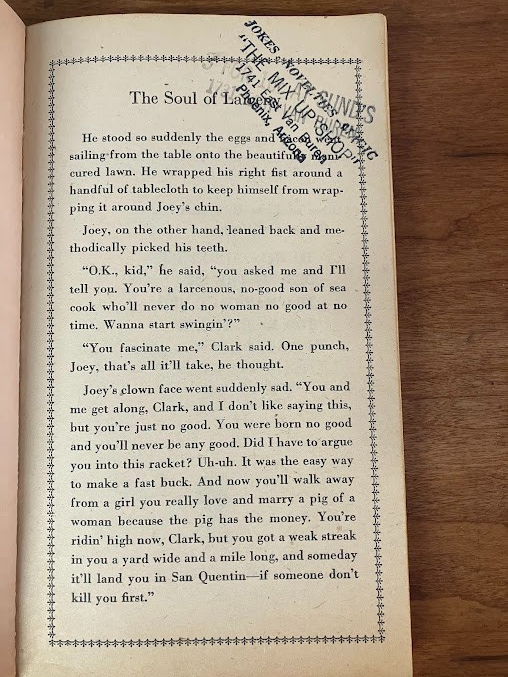 JOKES NOVELTIES MAGIC
"THE MIX UP SHOP"
1741 East Van Buren
Phoenix, Arizona
The Soul of
He stood so suddenly the eggs and
sailing from the table onto the beautifully
cured lawn. He wrapped his right fist around a
handful of tablecloth to keep himself from wrap-
ping it around Joey's chin.
Joey, on the other hand, leaned back and me-
thodically picked his teeth.
"O.K., kid," he said, "you asked me and I'll
tell you. You're a larcenous, no-good son of sea
cook who'll never do no woman no good at no
time. Wanna start swingin'?"
"You fascinate me," Clark said. One punch,
Joey, that's all it'll take, he thought.
Joey's clown face went suddenly sad. "You and
me get along, Clark, and I don't like saying this,
but you're just no good. You were born no good
and you'll never be any good. Did I have to argue
you into this racket? Uh-uh. It was the easy way
to make a fast buck. And now you'll walk away
from a girl you really love and marry a pig of a
woman because the pig has the money. You're
ridin' high now, Clark, but you got a weak streak
in you a yard wide and a mile long, and someday
it'll land you in San Quentin—if someone don't
kill you first."